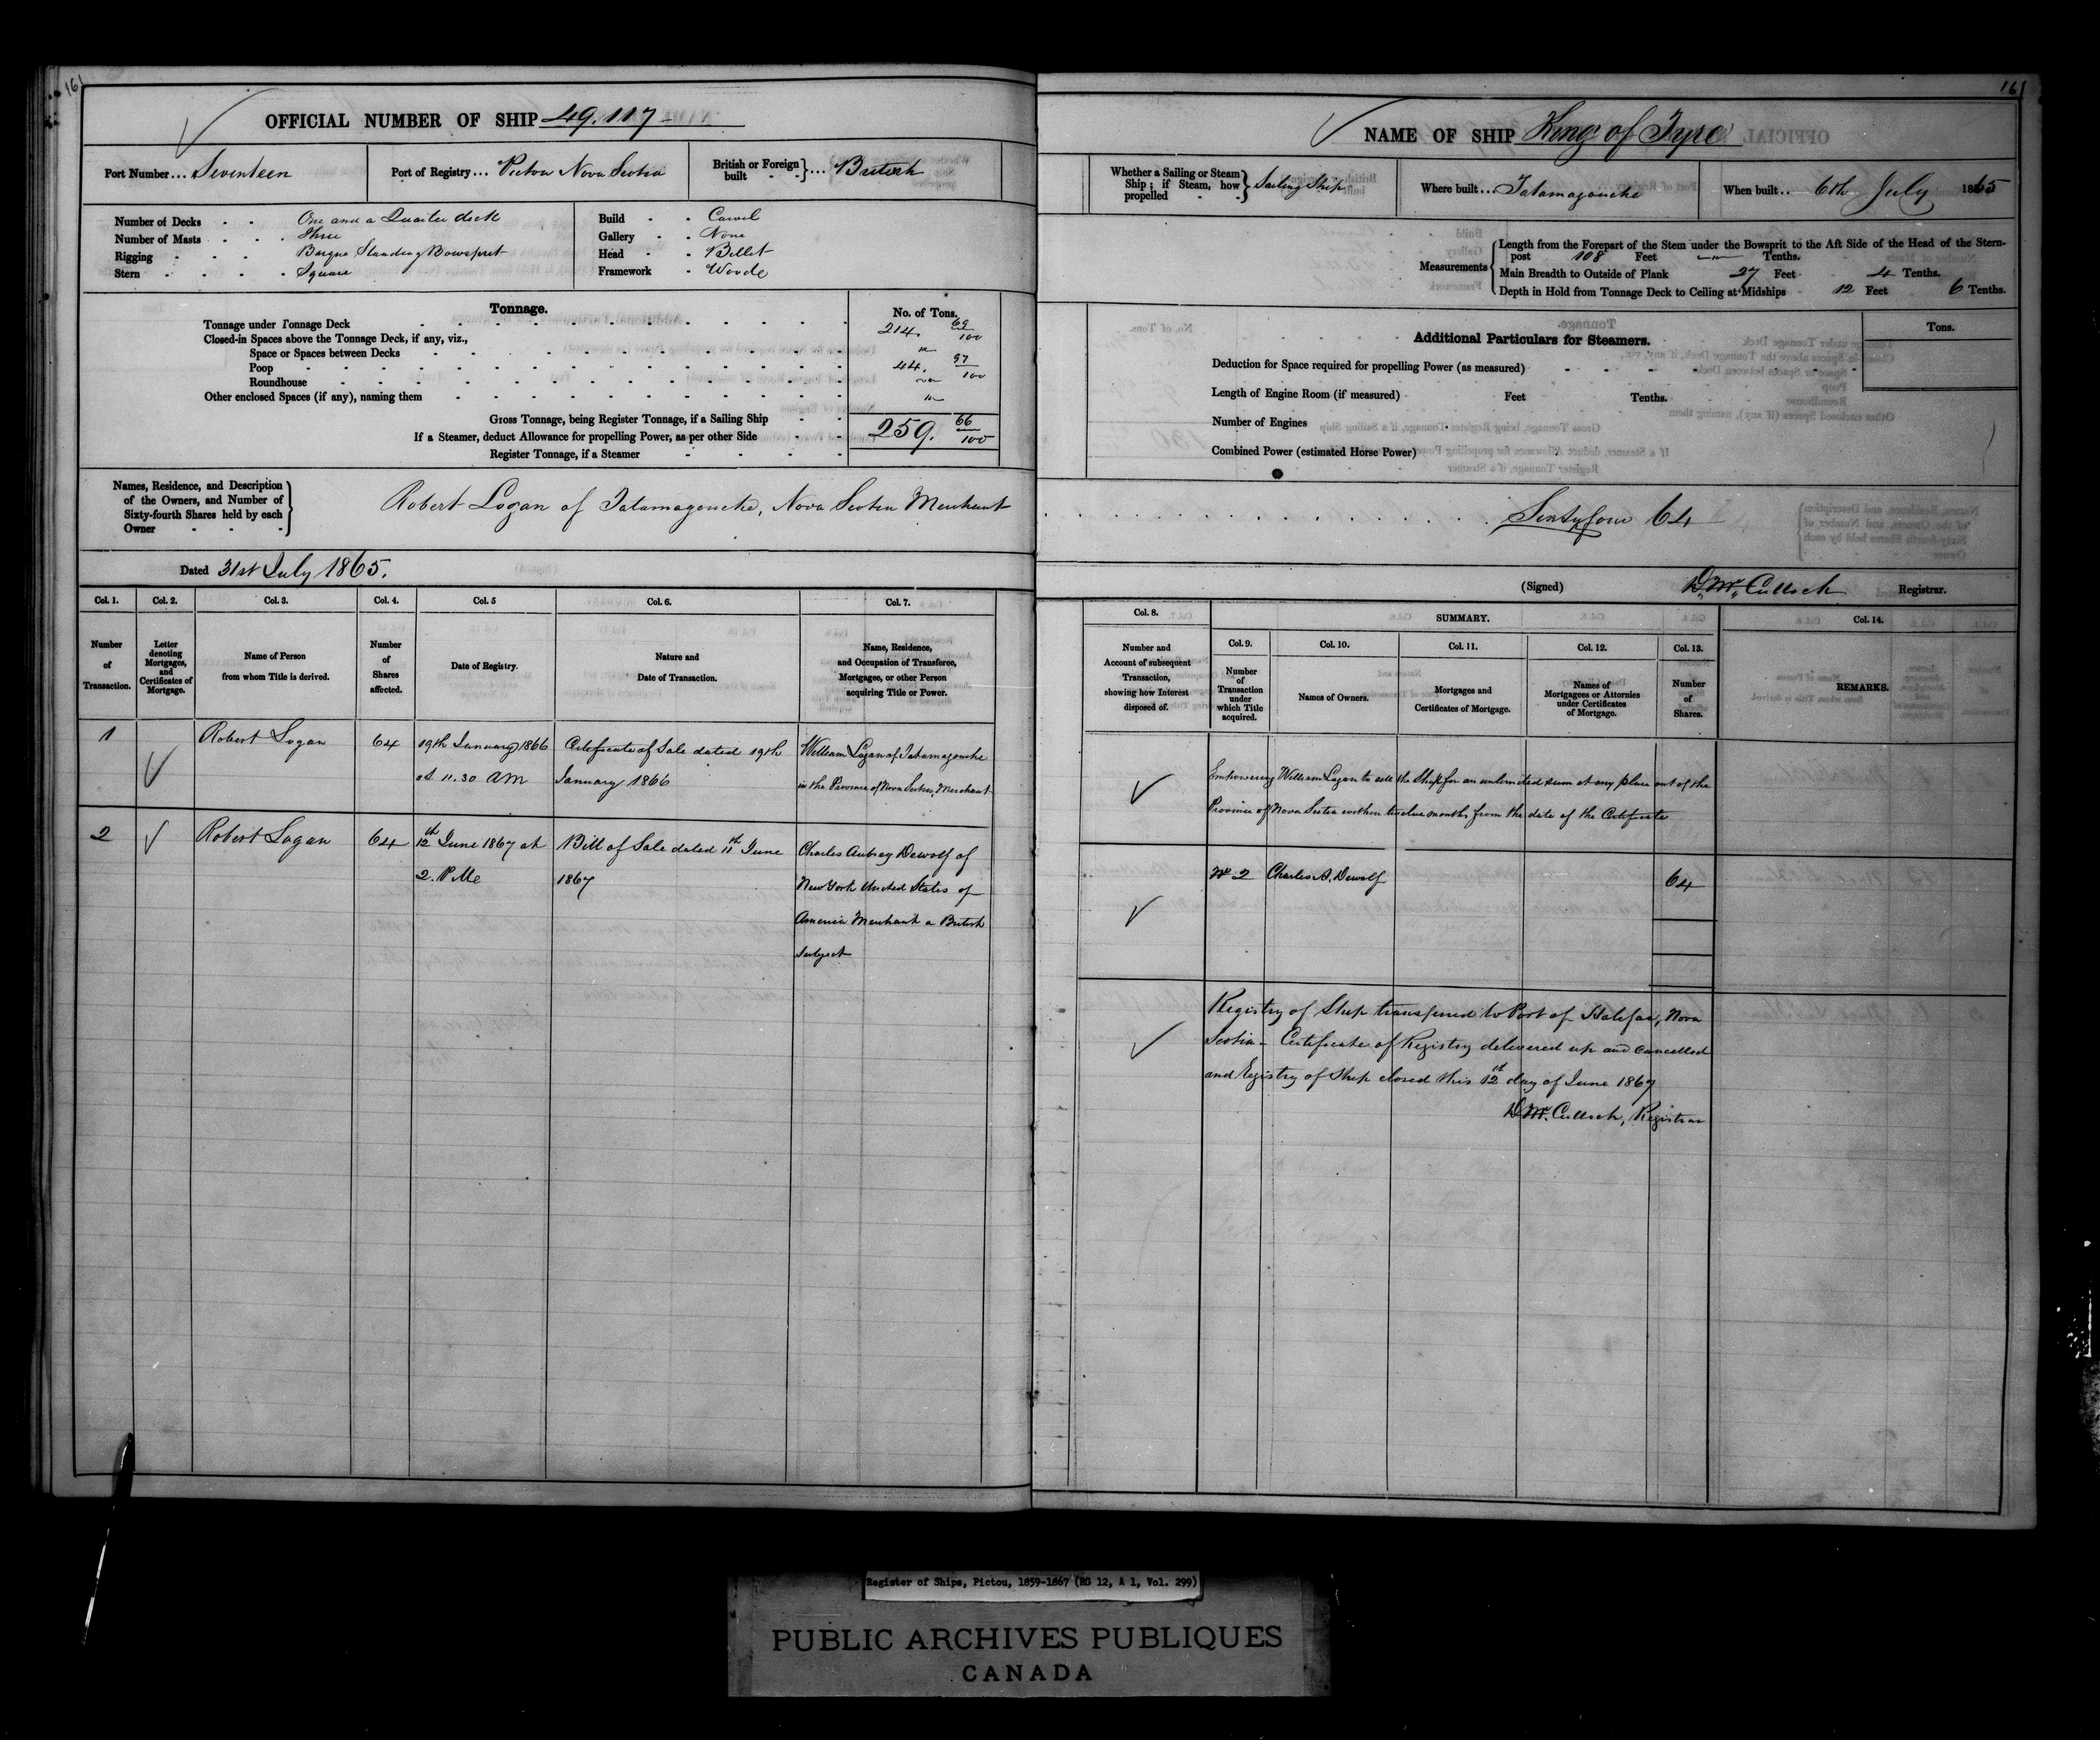 161
OFFICIAL NUMBER OF SHIP 49.117
Port Number... Seventeen
Port of Registry... Pictou Nova Scotia
British or Foreign built - - } ... British
Number of Decks - - One and a Quarter deck
Number of Masts - - - Three
Rigging - - - Barque Standing Bowsprit
Stern - - - - Square
Build - - Carvel
Gallery - - None
Head - - Billet
Framework - Woode
Tonnage.
No. of Tons.
Tonnage under Tonnage Deck 214. 69/100
Closed-in Spaces above the Tonnage Deck, if any, viz.,
Space or Spaces between Decks
Poop 44. 97/100
Roundhouse
Other enclosed Spaces (if any), naming them
Gross Tonnage, being Register Tonnage, if a Sailing Ship 259. 66/100
If a Steamer, deduct Allowance for propelling Power, as per other Side
Register Tonnage, if a Steamer
Names, Residence, and Description
of the Owners, and Number of
Sixty-fourth Shares held by each
Owner
Robert Logan of Tatamagouche, Nova Scotia Merchant
Dated 31st July 1865.
Col. 1. Col. 2. Col. 3. Col. 4. Col. 5 Col. 6. Col. 7.
Number of Transaction.
Letter denoting Mortgages, and Certificates of Mortgage.
Name of Person from whom Title is derived.
Number of Shares affected.
Date of Registry.
Nature and Date of Transaction.
Name, Residence, and Occupation of Transferee, Mortgagee, or other Person acquiring Title or Power.
1 Robert Logan 64 19th January 1866 Certificate of Sale dated 19th William Logan of Tatamagouche
at 11.30 AM January 1866 in the Province of Nova Scotia, Merchant
2 Robert Logan 64 12th June 1867 at Bill of Sale dated 11th June Charles Aubrey Dewolf of
2. PM 1867 New York United States of
America Merchant a British
Subject
161
NAME OF SHIP King of Tyre
Whether a Sailing or Steam Ship; if Steam, how propelled - - } Sailing Ship
Where built... Tatamagouche
When built... 6th July 1865
Measurements
Length from the Forepart of the Stem under the Bowsprit to the Aft Side of the Head of the Stern-
post 108 Feet Tenths.
Main Breadth to Outside of Plank 27 Feet 4 Tenths.
Depth in Hold from Tonnage Deck to Ceiling at Midships 12 Feet 6 Tenths.
Additional Particulars for Steamers.
Tons.
Deduction for Space required for propelling Power (as measured)
Length of Engine Room (if measured) Feet Tenths.
Number of Engines
Combined Power (estimated Horse Power)
Sixty four 64
(Signed) D. McCulloch Registrar.
Col. 8. SUMMARY. Col. 14.
Col. 9. Col. 10. Col. 11. Col. 12. Col. 13.
Number and Account of subsequent Transaction, showing how Interest disposed of.
Number of Transaction under which Title acquired.
Names of Owners.
Mortgages and Certificates of Mortgage.
Names of Mortgagees or Attornies under Certificates of Mortgage.
Number of Shares.
REMARKS.
Empowering William Logan to sell the Ship for an unlimited sum at any place out of the
Province of Nova Scotia within twelve months from the date of the Certificate
No 2 Charles A. Dewolf 64
Registry of Ship transferred to Port of Halifax, Nova
Scotia - Certificate of Registry delivered up and cancelled
and Registry of Ship closed this 12th day of June 1867
D. McCulloch, Registrar
Register of Ships, Pictou, 1859-1867 (RG 12, A 1, Vol. 299)
PUBLIC ARCHIVES PUBLIQUES
CANADA